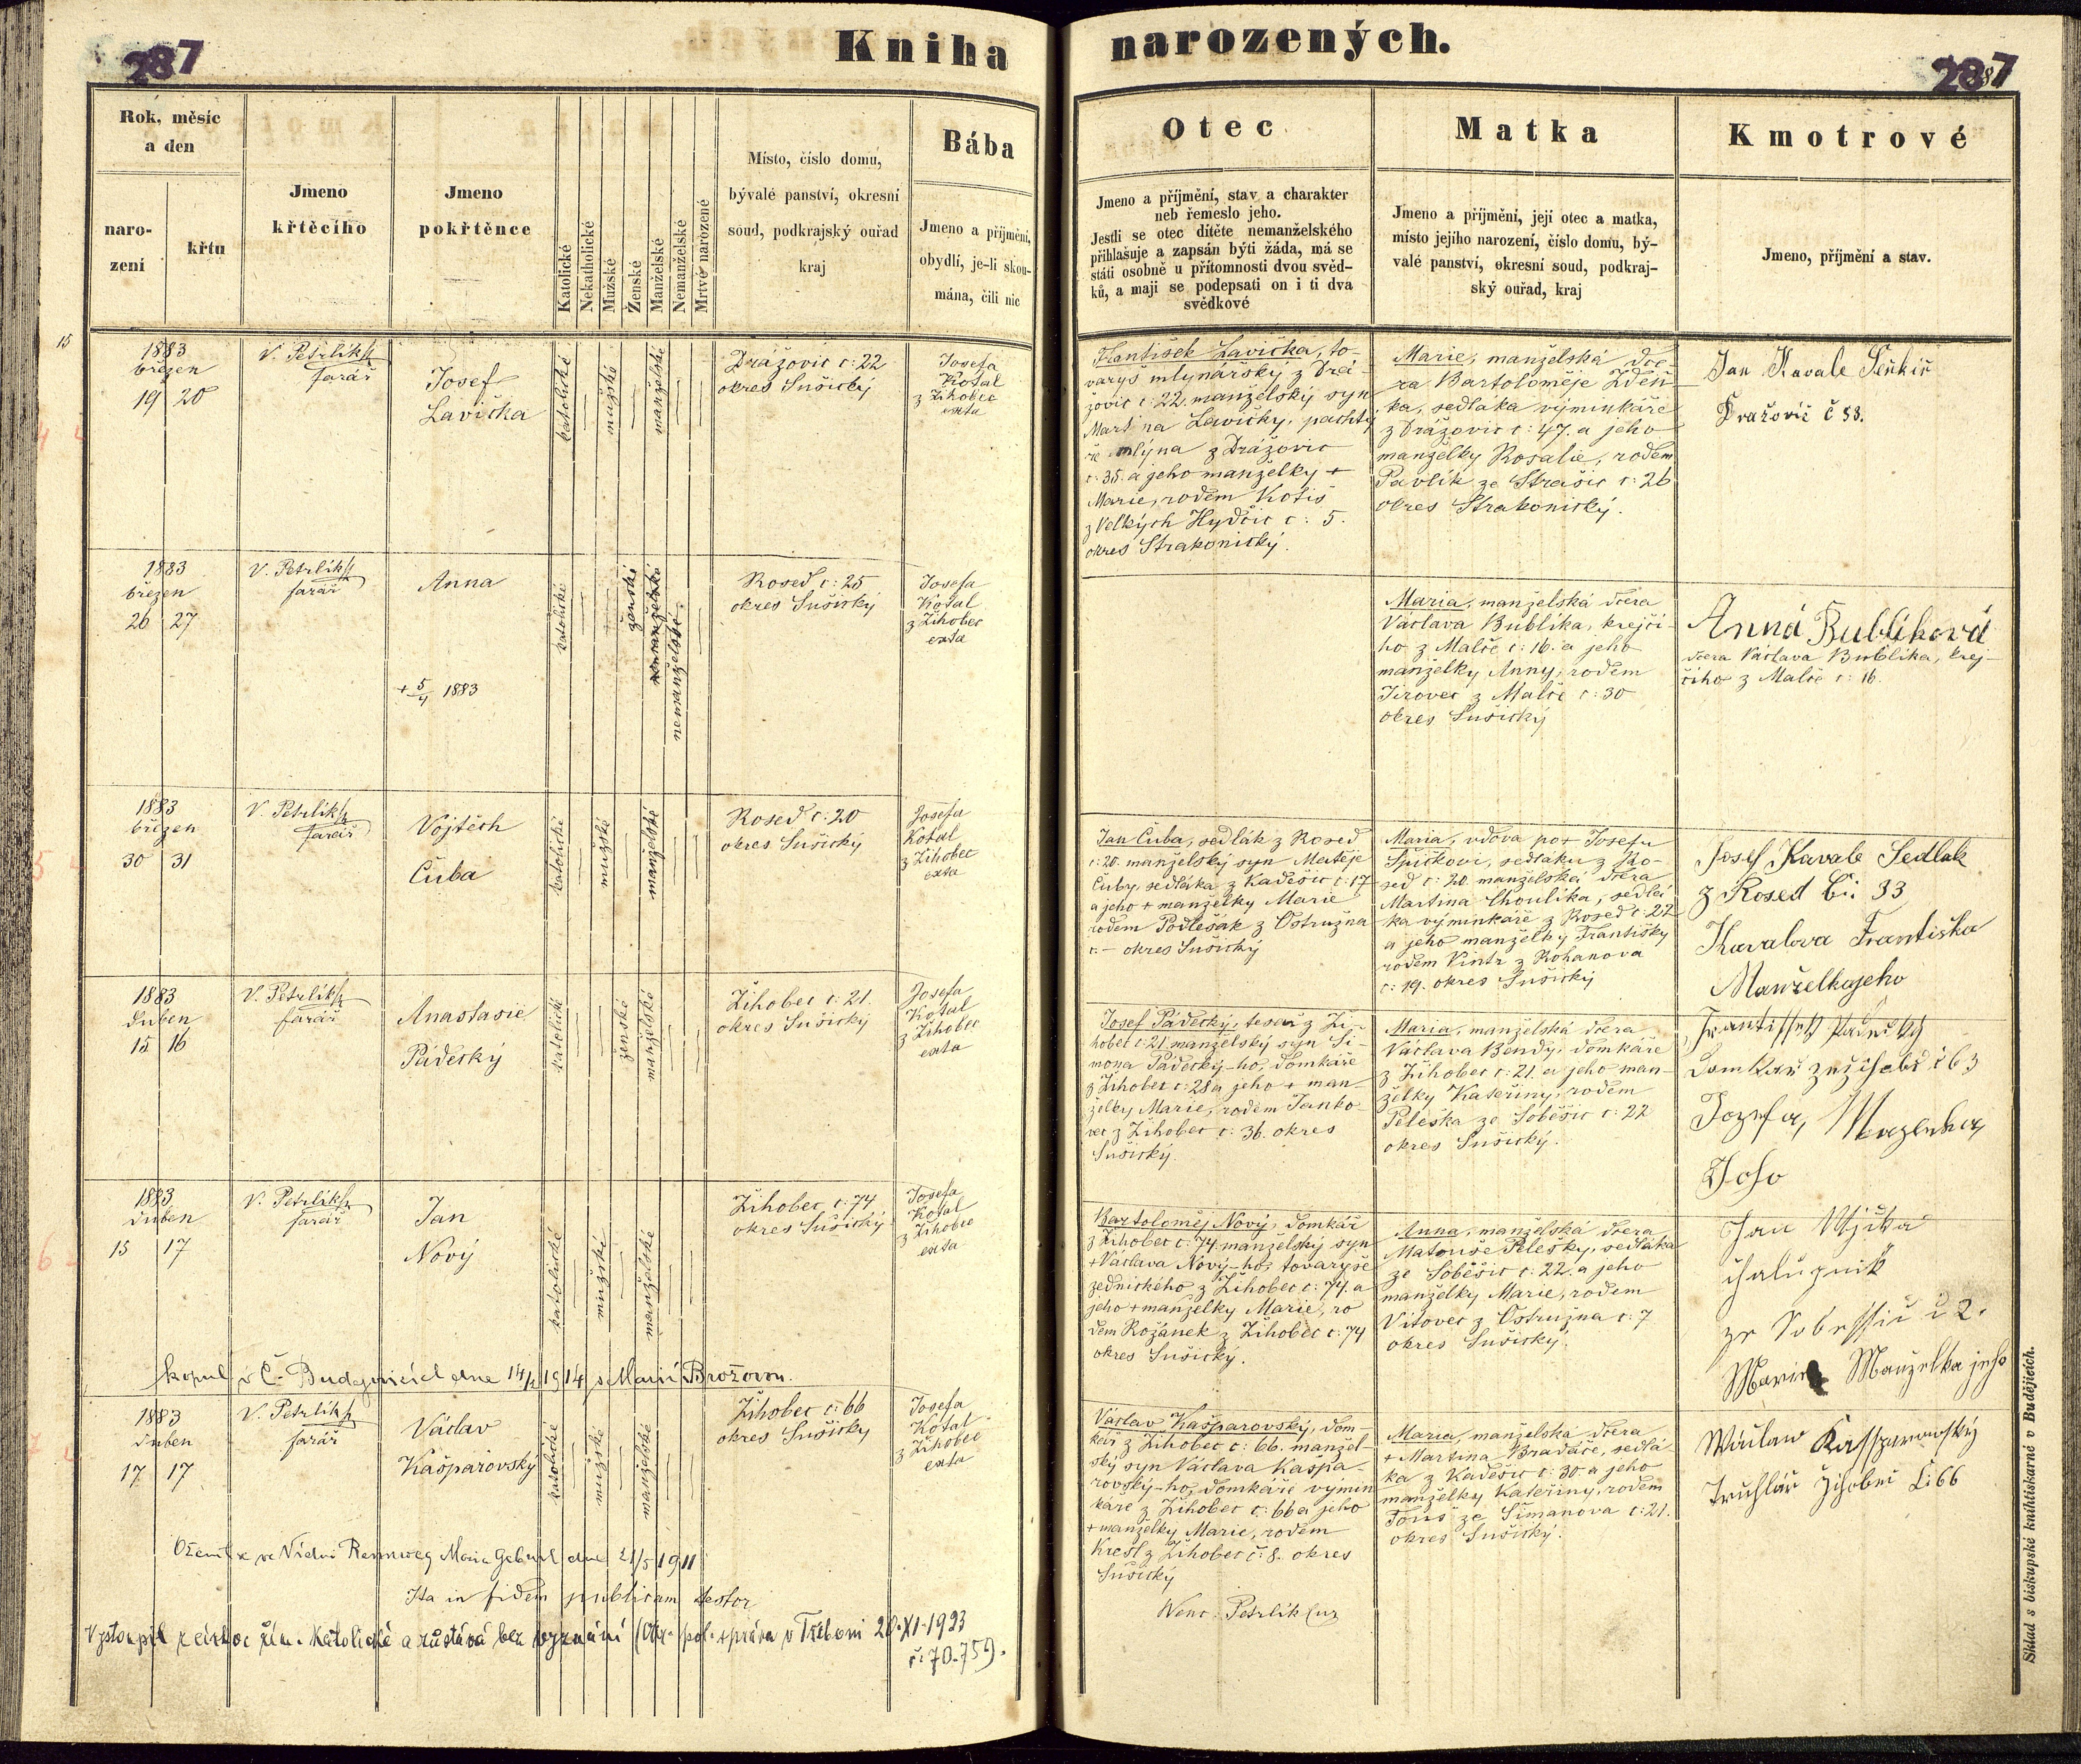 287
Kniha
narozených.
287
Rok, měsíc
a den
naro-
zení
křtu
Jmeno
křtěcího
Jmeno
pokřtěnce
Katolické
Nekatholické
Mužské
Ženské
Manželské
Nemanželské
Mrtvé narozené
Místo, číslo domu,
bývalé panství, okresní
soud, podkrajský ouřad
kraj
Bába
Jmeno a příjmění,
obydlí, je-li skou-
mána, čili nic
Otec
Jmeno a příjmění, stav a charakter
neb řemeslo jeho.
Jestli se otec dítěte nemanželského
přihlašuje a zapsán býti žáda, má se
státi osobně u přítomnosti dvou svěd-
ků, a mají se podepsati on i ti dva
svědkové
Matka
Jmeno a příjmění, její otec a matka,
místo jejího narození, číslo domu, bý-
valé panství, okresní soud, podkraj-
ský ouřad, kraj
Kmotrové
Jmeno, příjmění a stav.
15
1883
březen
19 20
V. Petrlík
farář
Josef
Lavička
katolické
mužské
manželské
Drážovic č: 22
okres Sušický
Josefa
Kotal
z Žihobec
exta
František Lavička, to-
varyš mlynářský z Drá-
žovic č: 22. manželský syn
Martina Lavičky, pachtý
ře mlýna z Drážovic
č: 35. a jeho manželky +
Marie, rodem Kotiš
z Velkých Hydčic č: 5.
okres Strakonický.
Marie, manželská dce-
ra Bartoloměje Zdeň
ka, sedláka výminkáře
z Drážovic č: 47. a jeho
manželky Rosalie, rodem
Pavlík ze Strašic č: 26
okres Strakonický.
Jan Kavale
Dražovic č 38.
1883
březen
26 27
V. Petrlík
farář
Anna
+ 5/4 1883
katolické
ženské
nemanželské
nemanželské
Rosed č: 25
okres Sušický
Josefa
Kotal
z Žihobec
exta
Maria, manželská dcera
Václava Bublíka, krejčí-
ho z Malče č: 16. a jeho
manželky Anny, rodem
Jirovec z Malče č: 30
okres Sušický
Anna Bublíková
dcera Václava Bublíka, krej-
čího z Malče č: 16.
1883
březen
30 31
V. Petrlík
farář
Vojtěch
Čuba
katolické
mužské
manželské
Rosed č: 20
okres Sušický
Josefa
Kotal
z Žihobec
exta
Jan Čuba, sedlák z Rosed
č: 20. manželský syn Matěje
Čuby, sedláka z Kadešic č: 17
a jeho + manželky Marie
rodem Podlešák z Ostružna
č: – okres Sušický
Maria, vdova po + Josefu
Špičkovi, sedláku z Ro-
sed č: 20. manželská dcera
Martina Choulíka, sedlá
ka výminkáře z Rosed č: 22
a jeho manželky Františky
rodem Vintr z Rohanova
č: 19. okres Sušický
Josef Kavale Sedlak
z Rosed Č: 33
Kavalova Františka
Manželka jeho
1883
Duben
15 16
V. Petrlík
farář
Anastasie
Pádecký
katolické
ženské
manželské
Žihobec č: 21.
okres Sušický
Josefa
Kotal
z Žihobec
exta
Josef Pádecký, tesař z Ži-
hobec č: 21. manželský syn Ši-
mona Pádecký-ho, domkáře
z Žihobec č: 28 a jeho + man-
želky Marie, rodem Janko-
vec z Žihobec č: 36. okres
Sušický.
Maria, manželská dcera
Václava Bendy, domkáře
z Žihobec č: 21. a jeho man-
želky Kateřiny, rodem
Peleška ze Soběšic č: 22
okres Sušický.
Frantissek Padecky
Domkař
Jozefa,
Joho
1883
duben
15 17
V. Petrlík
farář
Jan
Nový
katolické
mužské
manželské
Žihobec č: 74
okres Sušický
Josefa
Kotal
z Žihobec
exta
Bartoloměj Nový, domkář
z Žihobec č: 74. manželský syn
+ Václava Nový-ho, tovaryše
zednického z Žihobec č: 74. a
jeho + manželky Marie, ro
dem Rožánek z Žihobec č: 74
okres Sušický.
Anna, manželská dcera
Matouše Pelešky, sedláka
ze Soběšic č: 22. a jeho
manželky Marie, rodem
Vítovec z Ostružna č: 7
okres Sušický.
Jan
chalupník
ze Sobessic č 2.
Marie Manzelka jeho
kopul. v Č. Budějovicích dne 14/2 1914 s Marií Brožovou.
1883
duben
17 17
V. Petrlík
farář
Václav
Kašparovský
katolické
mužské
manželské
Žihobec č: 66
okres Sušický
Josefa
Kotal
z Žihobec
exta
Václav Kašparovský, dom-
kář z Žihobec č: 66. manžel-
ský syn Václava Kašpa-
rovský-ho, domkáře výmin
káře z Žihobec č: 66 a jeho
+ manželky Marie, rodem
Kresl z Žihobec č: 8. okres
Sušický
Maria, manželská dcera
+ Martina Bradáče, sedlá
ka z Kadešic č: 30. a jeho
manželky Kateřiny, rodem
Fouš ze Šimanova č: 21.
okres Sušický.
Wáclaw Kassparowský
Truhlář Žihobec Č: 66
Oženil se ve Vídni Rennweg Marie dne 21/5 1911
Ita in fidem publicam testor
Wenc. Petrlík
Vystoupil z církve řím. Katolické a zůstává bez vyznání (Okr. pol. správa v Třeboni 20.XI.1923
č: 70.759.
Sklad s biskupské knihtiskárně v Budějicích.